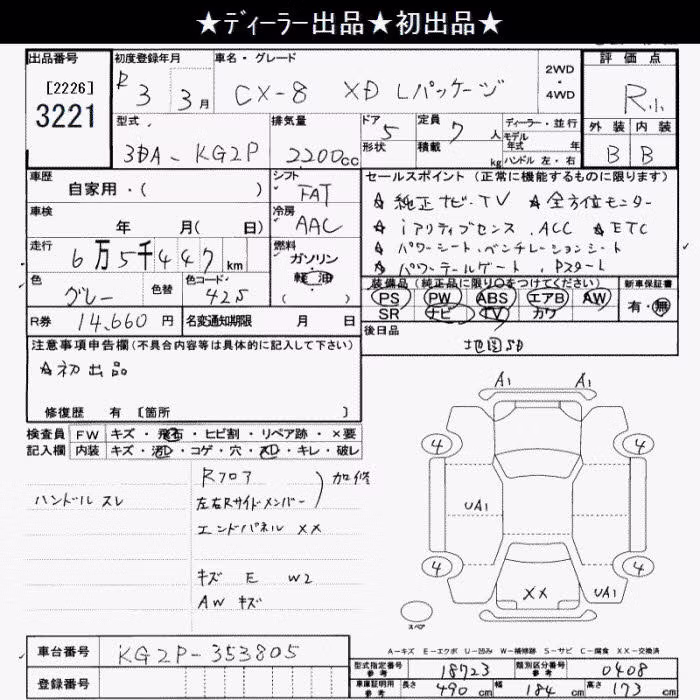 ★ディーラー出品★初出品★
出品番号 初度登録年月 車名・グレード 2WD・4WD 評価点
[2226]
3221
R 3 3月 CX-8 XD Lパッケージ R小
型式 排気量 ドア 5 定員 7 人 ディーラー・並行 外装 内装
3DA-KG2P 2200cc 形状 積載 kg モデル年式 年式 ハンドル 左・右 B B
車歴 自家用・( ) シフト FAT
車検 年 月( 日) 冷房 AAC
走行 6万5千447km 燃料 ガソリン・軽油 ( )
色 グレー 色替 色コード 42S
R券 14,660円 名変通知期限 月 日
セールスポイント(正常に機能するものに限ります)
☆純正ナビ・TV ☆全方位モニター
☆iアクティブセンス、ACC ☆ETC
☆パワーシート、ベンチレーションシート
☆パワーテールゲート、Pスタート
装備品(純正品に限り○をつけてください) 新車保証書
PS PW ABS エアB AW 有・無
SR ナビ TV カワ
後日品 地図SD
注意事項申告欄(不具合内容等は具体的に記入して下さい)
☆初出品
修復歴 有 [箇所 ]
検査員記入欄
FW キズ・飛石・ヒビ割・リペア跡・×要
内装 キズ・汚D・コゲ・穴・スD・キレ・破レ
ハンドル スレ
Rフロア
左右Rサイドメンバー
加修
エンドパネル XX
キズ E W2
AW キズ
A1 A1
4 4
UA1
4 4
XX UA1
スペア
A-キズ E-エクボ U-凹み W-補修跡 S-サビ C-腐食 XX-交換済
車台番号 KG2P-353805
登録番号
型式指定番号 参考 18723 類別区分番号 参考 0408
車庫証明用 参考 長さ 490cm 幅 184cm 高さ 173cm